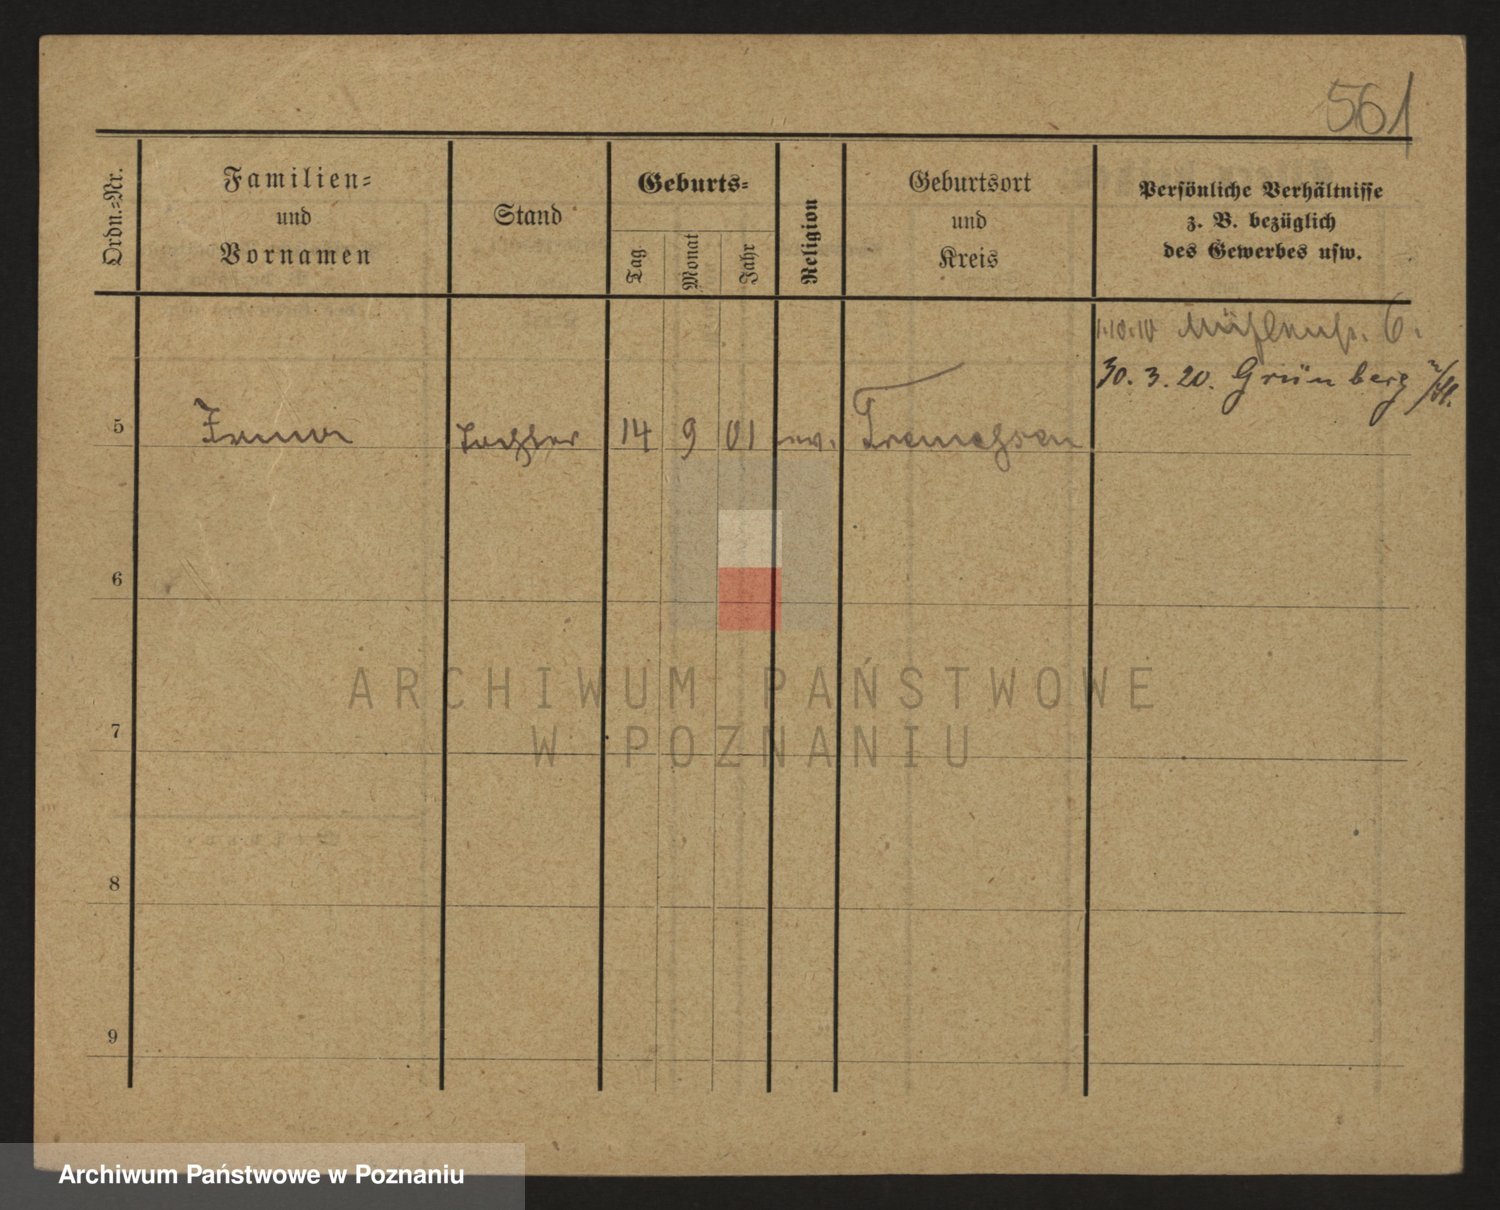 561
Ordn.-Nr.
Familien-
und
Vornamen
Stand
Geburts-
Tag
Monat
Jahr
Religion
Geburtsort
und
Kreis
Persönliche Verhältnisse
z. B. bezüglich
des Gewerbes usw.
1.10.10 Mühlenstr. 6.
30. 3. 20. Grünberg
5 Irma Tochter 14 9 01 ev. Tremessen
6
7
8
9
ARCHIWUM PAŃSTWOWE
W POZNANIU
Archiwum Państwowe w Poznaniu